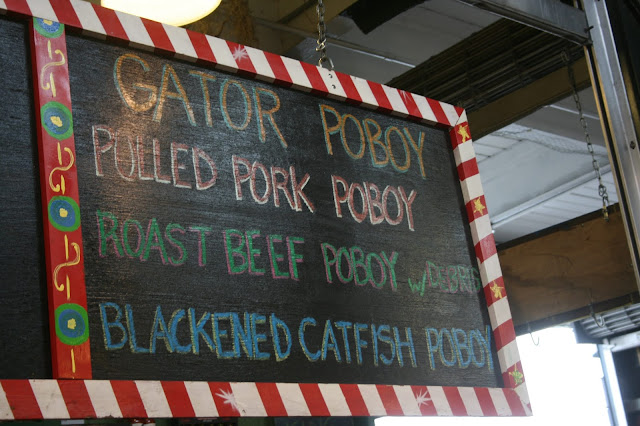 GATOR POBOY
PULLED PORK POBOY
ROAST BEEF POBOY W/DEBRIS
BLACKENED CATFISH POBOY